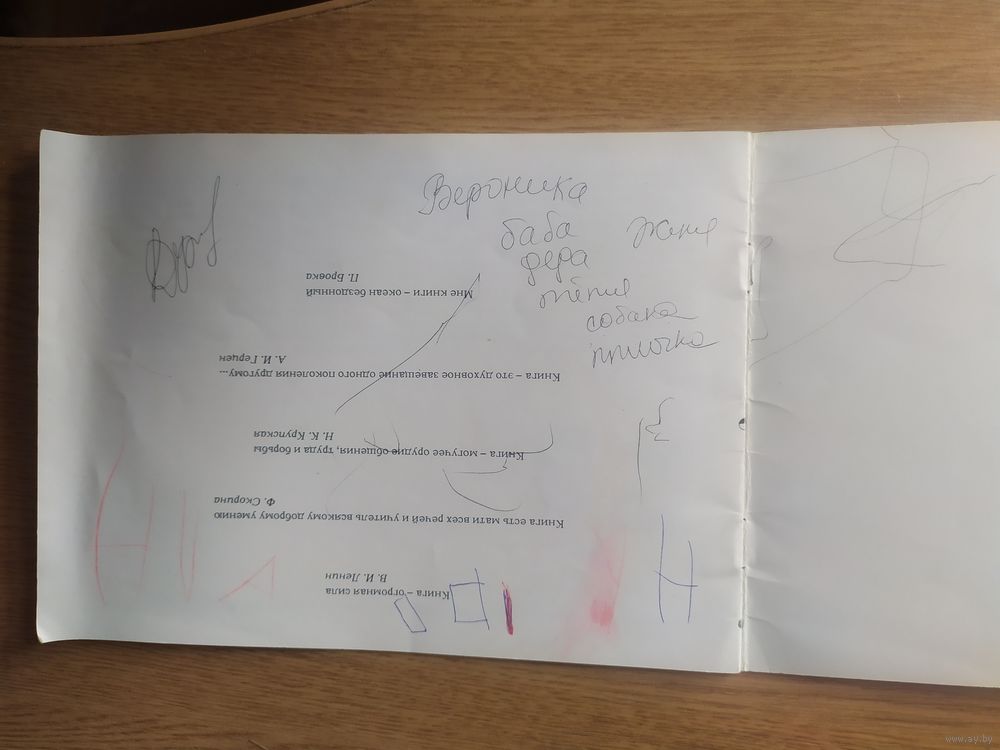 Вероника
баба Женя
дера
тётя
собака
Книга – огромная сила
В. И. Ленин
Книга есть мати всех речей и учитель всякому доброму умению
Ф. Скорина
Книга – могучее орудие общения, труда и борьбы
Н. К. Крупская
Книга – это духовное завещание одного поколения другому...
А. И. Герцен
Мне книги – океан бездонный
П. Бровка
www.ay.by